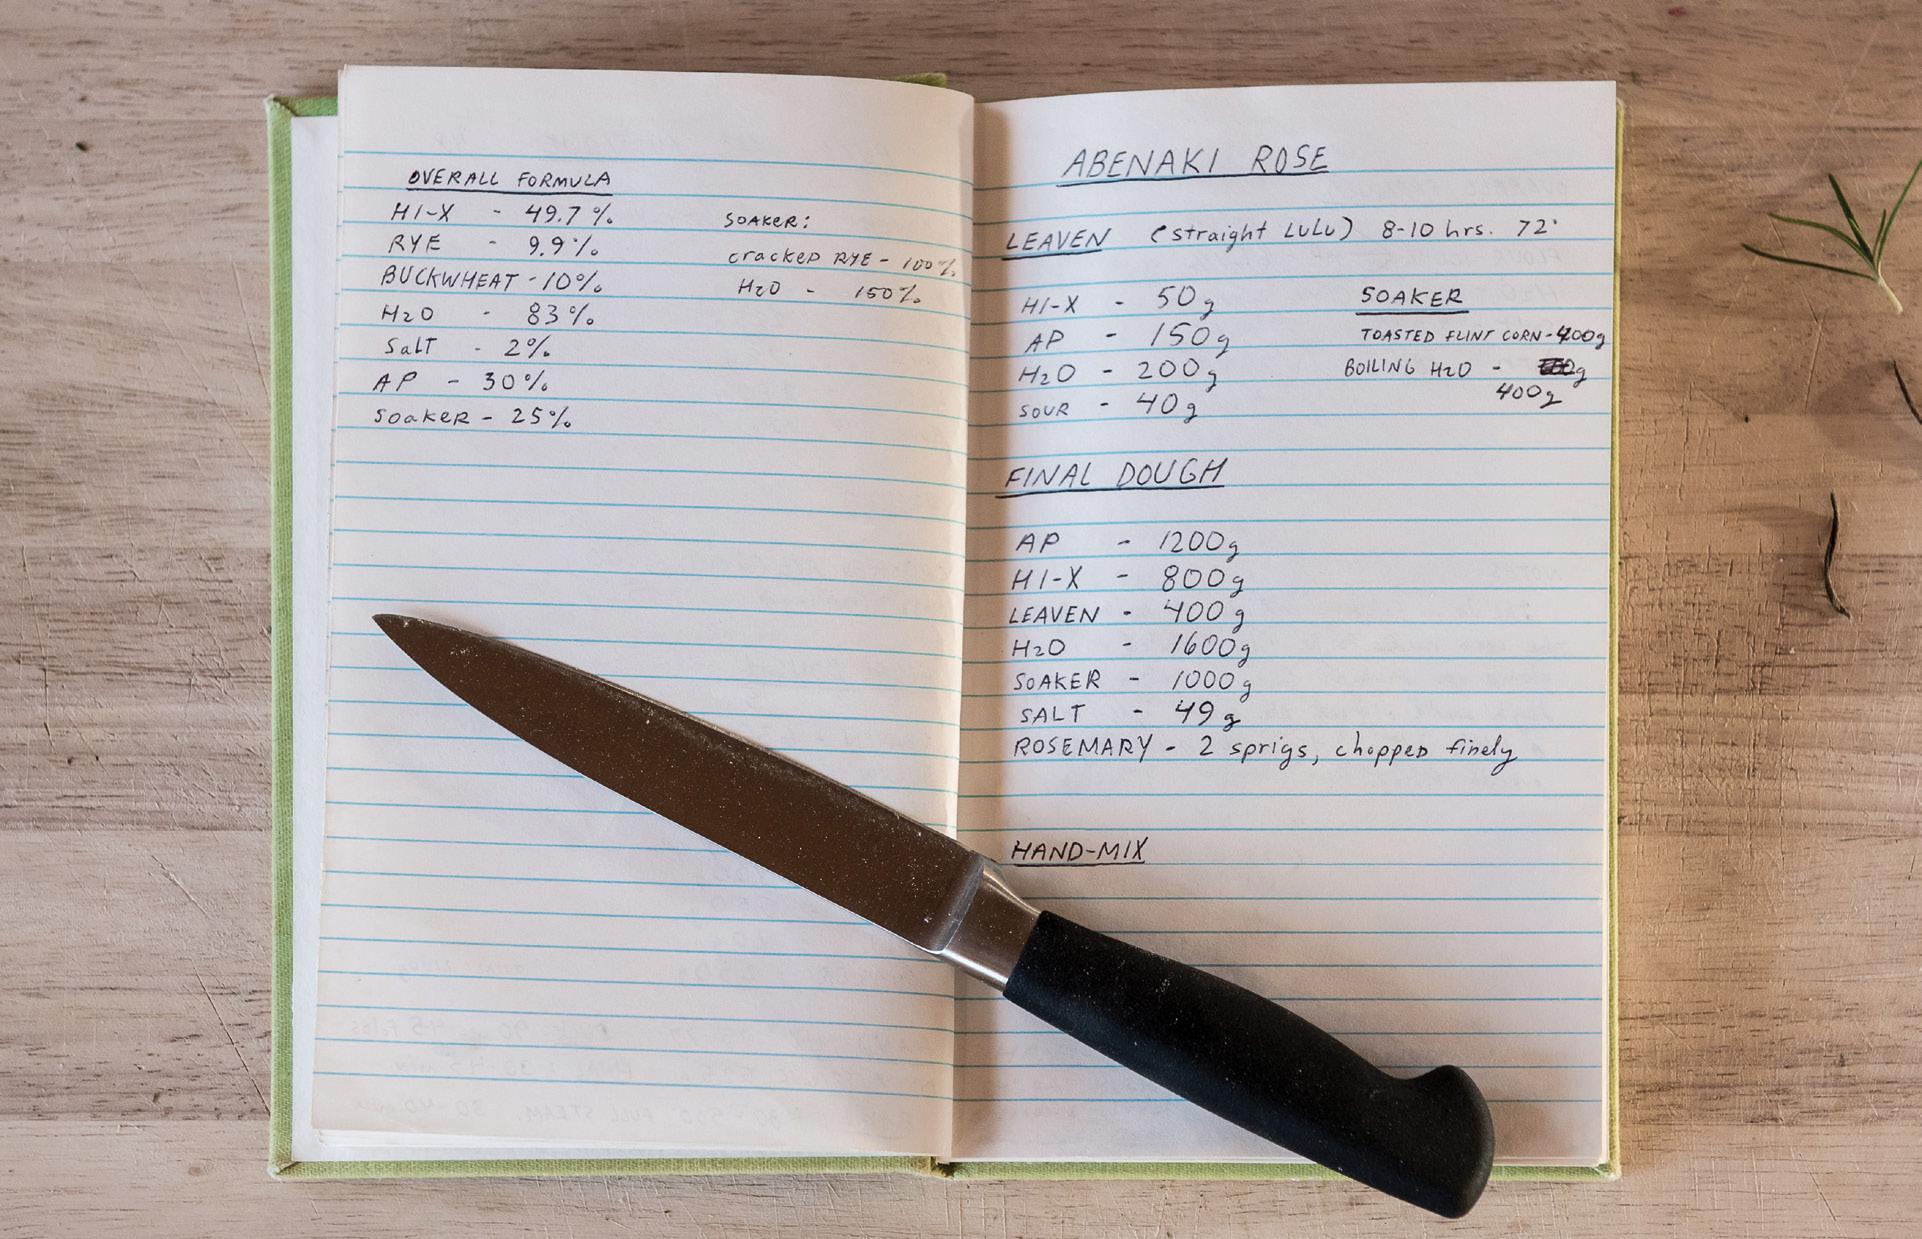 OVERALL FORMULA
HI-X - 49.7%
RYE - 9.9%
BUCKWHEAT - 10%
H2O - 83%
Salt - 2%
AP - 30%
Soaker - 25%
SOAKER:
cracked RYE - 100%
H2O - 150%
ABENAKI ROSE
LEAVEN (straight LULU) 8-10 hrs. 72°
HI-X - 50g
AP - 150g
H2O - 200g
SOUR - 40g
SOAKER
TOASTED FLINT CORN - 400g
BOILING H2O - g
400g
FINAL DOUGH
AP - 1200g
HI-X - 800g
LEAVEN - 400g
H2O - 1600g
SOAKER - 1000g
SALT - 49g
ROSEMARY - 2 sprigs, chopped finely
HAND-MIX